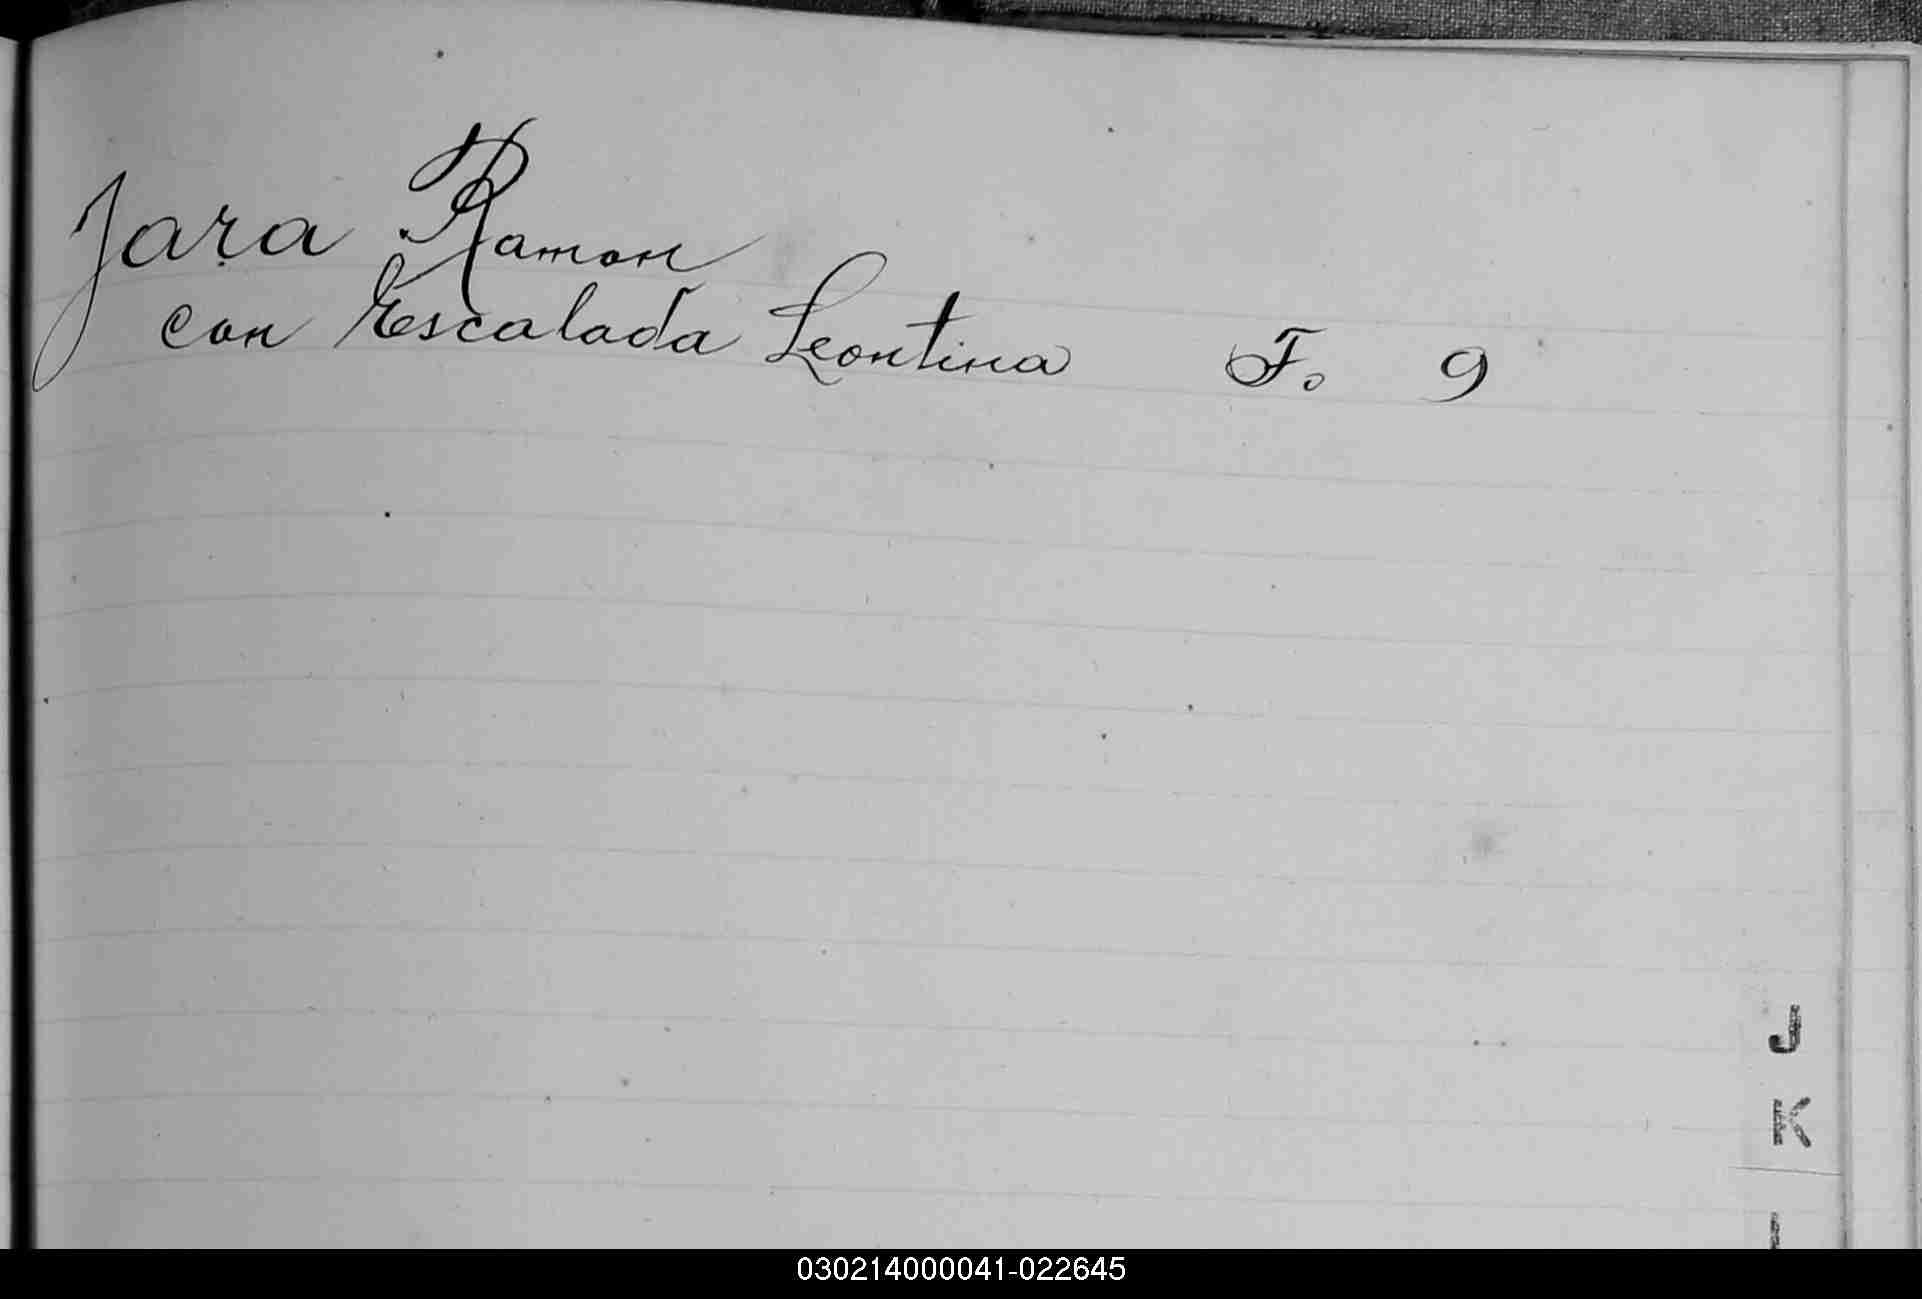 Jara Ramon
con Escalada Leontina F. 9
J
K
030214000041-022645